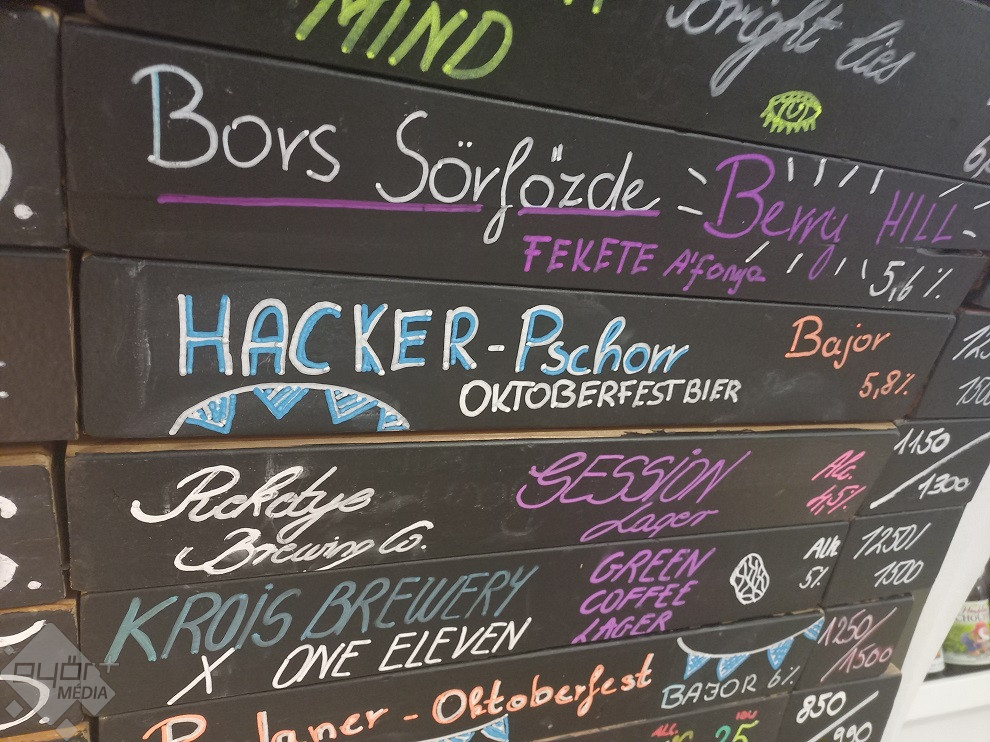 MIND
Bright lies
Bors Sörfőzde
Berry HILL
FEKETE Áfonya
5,6%
HACKER-Pschorr
OKTOBERFESTBIER
Bajor
5,8%
Brewing Co.
SESSION
Lager
Alc.
4,5%
1150
/1300
KROIS BREWERY
X ONE ELEVEN
GREEN
COFFEE
LAGER
Alk
5%
1250/
1500
- Oktoberfest
BAJOR 6%
1250/
1500
850/
990
GYŐR+
MÉDIA